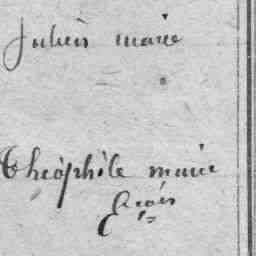 Julien marie
Théophile marie